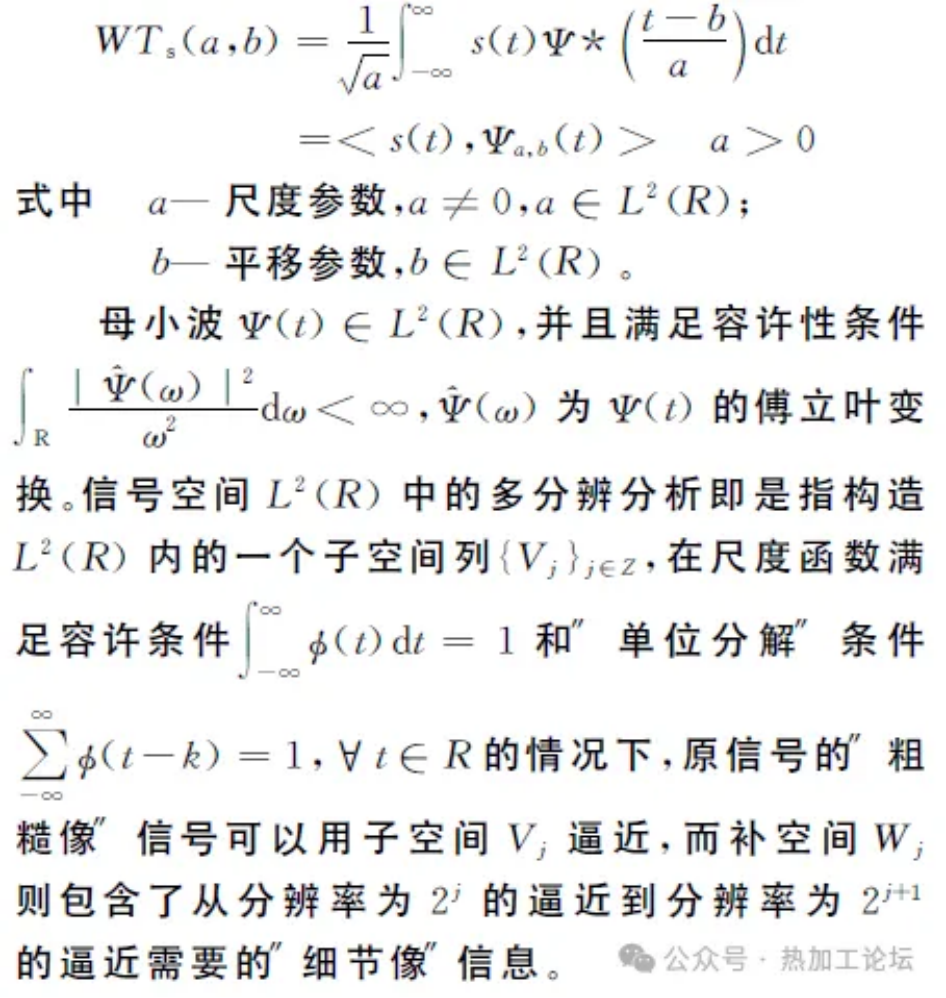 WTₛ(a,b) = 1/√a ∫_{-∞}^{∞} s(t)Ψ*((t-b)/a)dt
=< s(t),Ψ_{a,b}(t) > a > 0
式中 a— 尺度参数,a ≠ 0,a ∈ L²(R);
b— 平移参数,b ∈ L²(R)。
母小波 Ψ(t) ∈ L²(R),并且满足容许性条件
∫_R |Ψ̂(ω)|²/ω² dω < ∞,Ψ̂(ω) 为 Ψ(t) 的傅立叶变
换。信号空间 L²(R) 中的多分辨分析即是指构造
L²(R) 内的一个子空间列{V_j}_{j∈Z},在尺度函数满
足容许条件∫_{-∞}^{∞} ϕ(t)dt = 1 和″ 单位分解″ 条件
∑_{-∞}^{∞} ϕ(t-k) = 1, ∀ t ∈ R 的情况下,原信号的″ 粗
糙像″ 信号可以用子空间 V_j 逼近,而补空间 W_j
则包含了从分辨率为 2^j 的逼近到分辨率为 2^{j+1}
的逼近需要的″ 细节像″ 信息。
公众号 · 热加工论坛